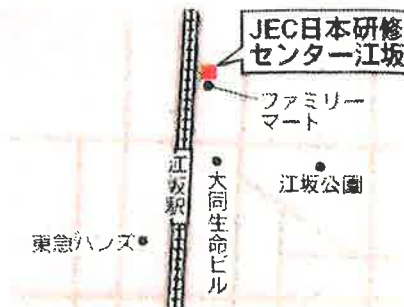 JEC日本研修
センター江坂
ファミリー
マート
江坂駅
大同生命ビル
江坂公園
東急ハンズ